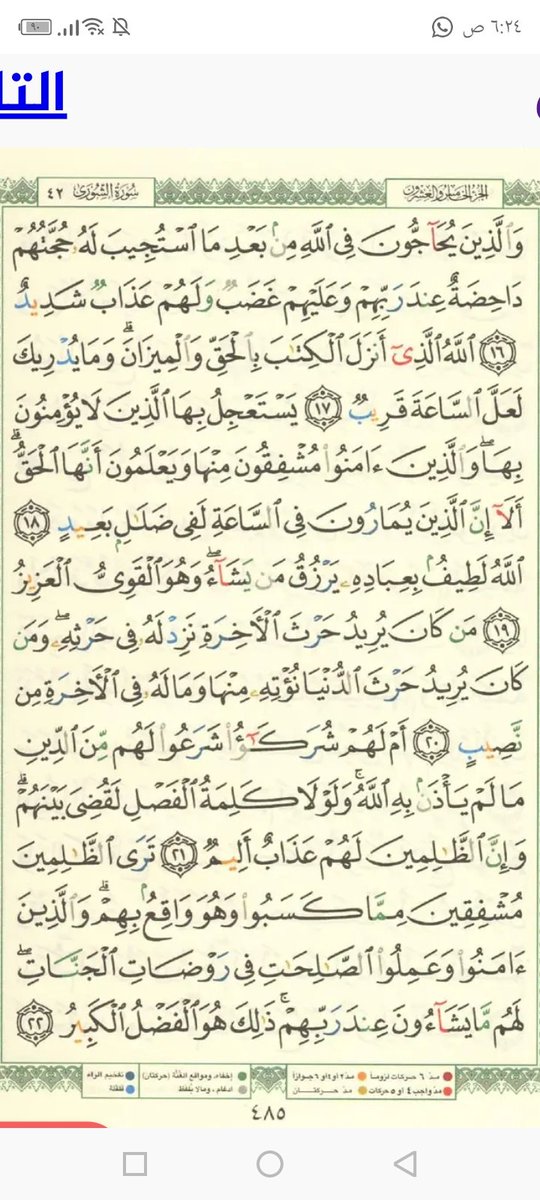 ٩٠ ٦:٢٤ ص
التا
سُورَةُ الشُّورَىٰ ٤٢ الجزء الخامس والعشرون
وَٱلَّذِينَ يُحَآجُّونَ فِى ٱللَّهِ مِنۢ بَعْدِ مَا ٱسْتُجِيبَ لَهُۥ حُجَّتُهُمْ
دَاحِضَةٌ عِندَ رَبِّهِمْ وَعَلَيْهِمْ غَضَبٌ وَلَهُمْ عَذَابٌ شَدِيدٌ
١٦ ٱللَّهُ ٱلَّذِىٓ أَنزَلَ ٱلْكِتَٰبَ بِٱلْحَقِّ وَٱلْمِيزَانَ ۗ وَمَا يُدْرِيكَ
لَعَلَّ ٱلسَّاعَةَ قَرِيبٌ ١٧ يَسْتَعْجِلُ بِهَا ٱلَّذِينَ لَا يُؤْمِنُونَ
بِهَا ۖ وَٱلَّذِينَ ءَامَنُوا۟ مُشْفِقُونَ مِنْهَا وَيَعْلَمُونَ أَنَّهَا ٱلْحَقُّ ۗ
أَلَآ إِنَّ ٱلَّذِينَ يُمَارُونَ فِى ٱلسَّاعَةِ لَفِى ضَلَٰلٍۭ بَعِيدٍ ١٨
ٱللَّهُ لَطِيفٌۢ بِعِبَادِهِۦ يَرْزُقُ مَن يَشَآءُ ۖ وَهُوَ ٱلْقَوِىُّ ٱلْعَزِيزُ
١٩ مَن كَانَ يُرِيدُ حَرْثَ ٱلْءَاخِرَةِ نَزِدْ لَهُۥ فِى حَرْثِهِۦ ۖ وَمَن
كَانَ يُرِيدُ حَرْثَ ٱلدُّنْيَا نُؤْتِهِۦ مِنْهَا وَمَا لَهُۥ فِى ٱلْءَاخِرَةِ مِن
نَّصِيبٍ ٢٠ أَمْ لَهُمْ شُرَكَٰٓؤُا۟ شَرَعُوا۟ لَهُم مِّنَ ٱلدِّينِ
مَا لَمْ يَأْذَنۢ بِهِ ٱللَّهُ ۚ وَلَوْلَا كَلِمَةُ ٱلْفَصْلِ لَقُضِىَ بَيْنَهُمْ ۗ
وَإِنَّ ٱلظَّٰلِمِينَ لَهُمْ عَذَابٌ أَلِيمٌ ٢١ تَرَى ٱلظَّٰلِمِينَ
مُشْفِقِينَ مِمَّا كَسَبُوا۟ وَهُوَ وَاقِعٌۢ بِهِمْ ۗ وَٱلَّذِينَ
ءَامَنُوا۟ وَعَمِلُوا۟ ٱلصَّٰلِحَٰتِ فِى رَوْضَاتِ ٱلْجَنَّاتِ ۖ
لَهُم مَّا يَشَآءُونَ عِندَ رَبِّهِمْ ۚ ذَٰلِكَ هُوَ ٱلْفَضْلُ ٱلْكَبِيرُ ٢٢
مد ٦ حركات لزوماً مد ٢ أو ٤ أو ٦ جوازاً إخفاء، ومواقع الغنّة (حركتان) تفخيم الراء
مد واجب ٤ أو ٥ حركات مد حركتان ادغام، وما لا يلفظ قلقلة
٤٨٥